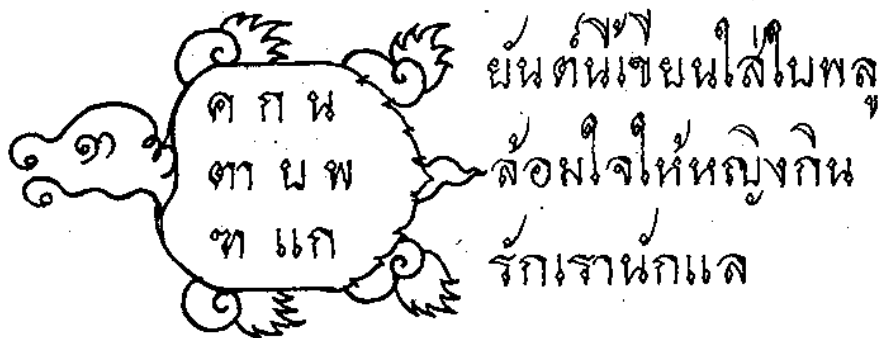 ค ก น
ตา ย พ
ฑ แก
ยันต์นี้เขียนใส่ใบพลู
ล้อมใจให้หญิงกิน
รักเรานักแล